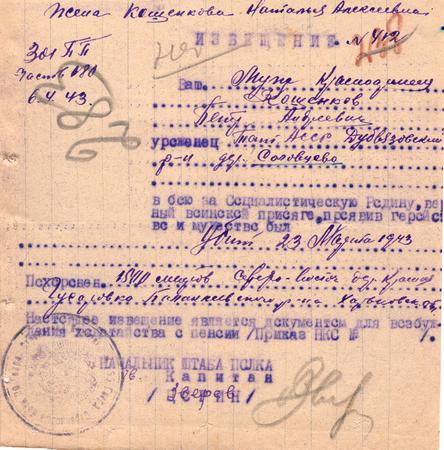 Жена Кощенкова Наталья Алексеевна
301 ПП
Часть 680
6.4.43.
ИЗВЕЩЕНИЕ № 412
Ваш Муж Красноармеец
Кощенков
Петр Андреевич
уроженец Тат. АССР Дубъязовский
р-н дер.
в бою за Социалистическую Родину, вер
ный воинской присяге, проявив геройс
во и мужество был
убит 23 Марта 1943
Похоронен 1500 метров Северо-восток дер. Красная
р-на Харьковской
Настоящее извещение является документом для возбуж
дения ходатайства о пенсии /Приказ НКО № /.
НАЧАЛЬНИК ШТАБА ПОЛКА
Капитан